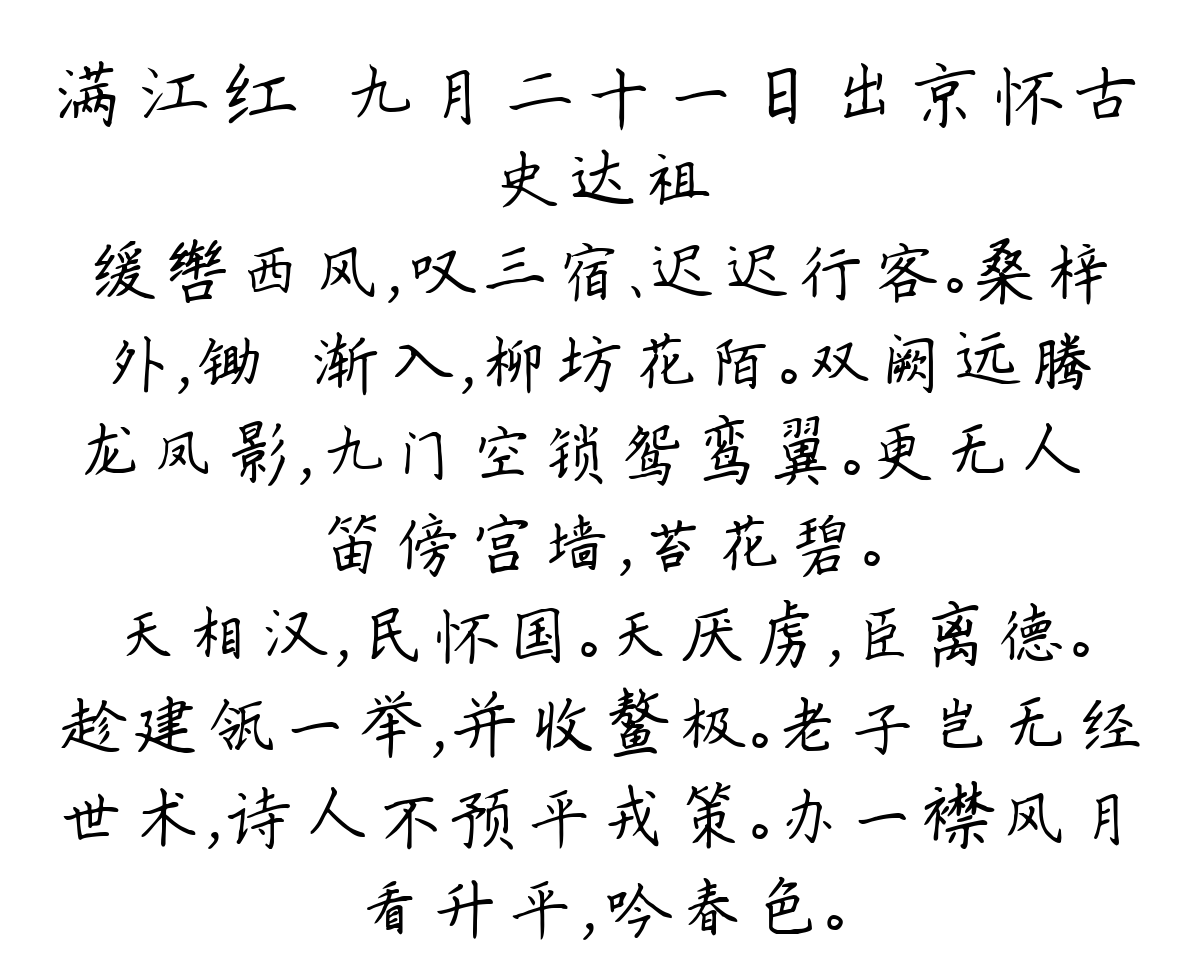 满江红 九月二十一日出京怀古
史达祖
缓辔西风,叹三宿、迟迟行客。桑梓
外,锄 渐入,柳坊花陌。双阙远腾
龙凤影,九门空锁鸳鸾翼。更无人
笛傍宫墙,苔花碧。
天相汉,民怀国。天厌虏,臣离德。
趁建瓴一举,并收鳌极。老子岂无经
世术,诗人不预平戎策。办一襟风月
看升平,吟春色。